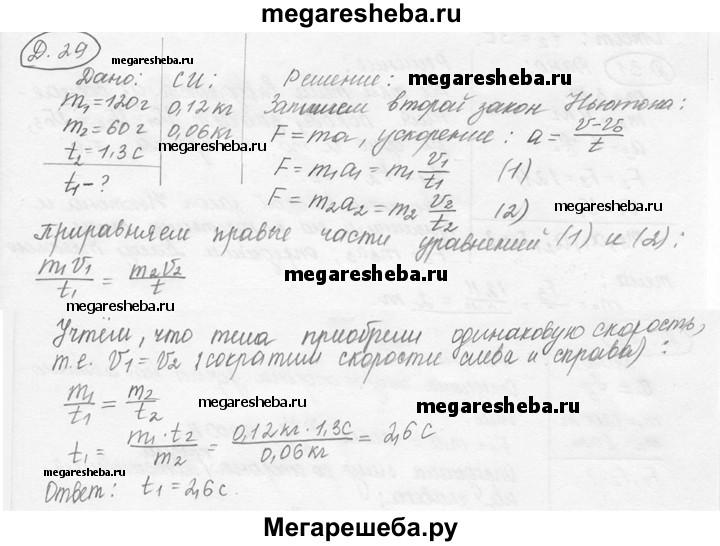 megaresheba.ru
Д. 29 megaresheba.ru
Дано: СИ: Решение: megaresheba.ru
m₁=120г 0,12кг Запишем второй закон Ньютона:
m₂=60г 0,06кг F=ma, ускорение: a=(v-v₀)/t
t₂=1,3с megaresheba.ru F=m₁a₁=m₁ v₁/t₁ (1)
t₁-? F=m₂a₂=m₂ v₂/t₂ (2) megaresheba.ru
Приравняем правые части уравнений (1) и (2):
m₁v₁/t₁ = m₂v₂/t megaresheba.ru
megaresheba.ru
Учтём, что тела приобрели одинаковую скорость,
т.е. v₁=v₂ (сократим скорости слева и справа):
m₁/t₁ = m₂/t₂ megaresheba.ru megaresheba.ru
t₁ = m₁·t₂/m₂ = 0,12кг·1,3с/0,06кг = 2,6с
megaresheba.ru
Ответ: t₁=2,6с. megaresheba.ru
Мегарешеба.ру